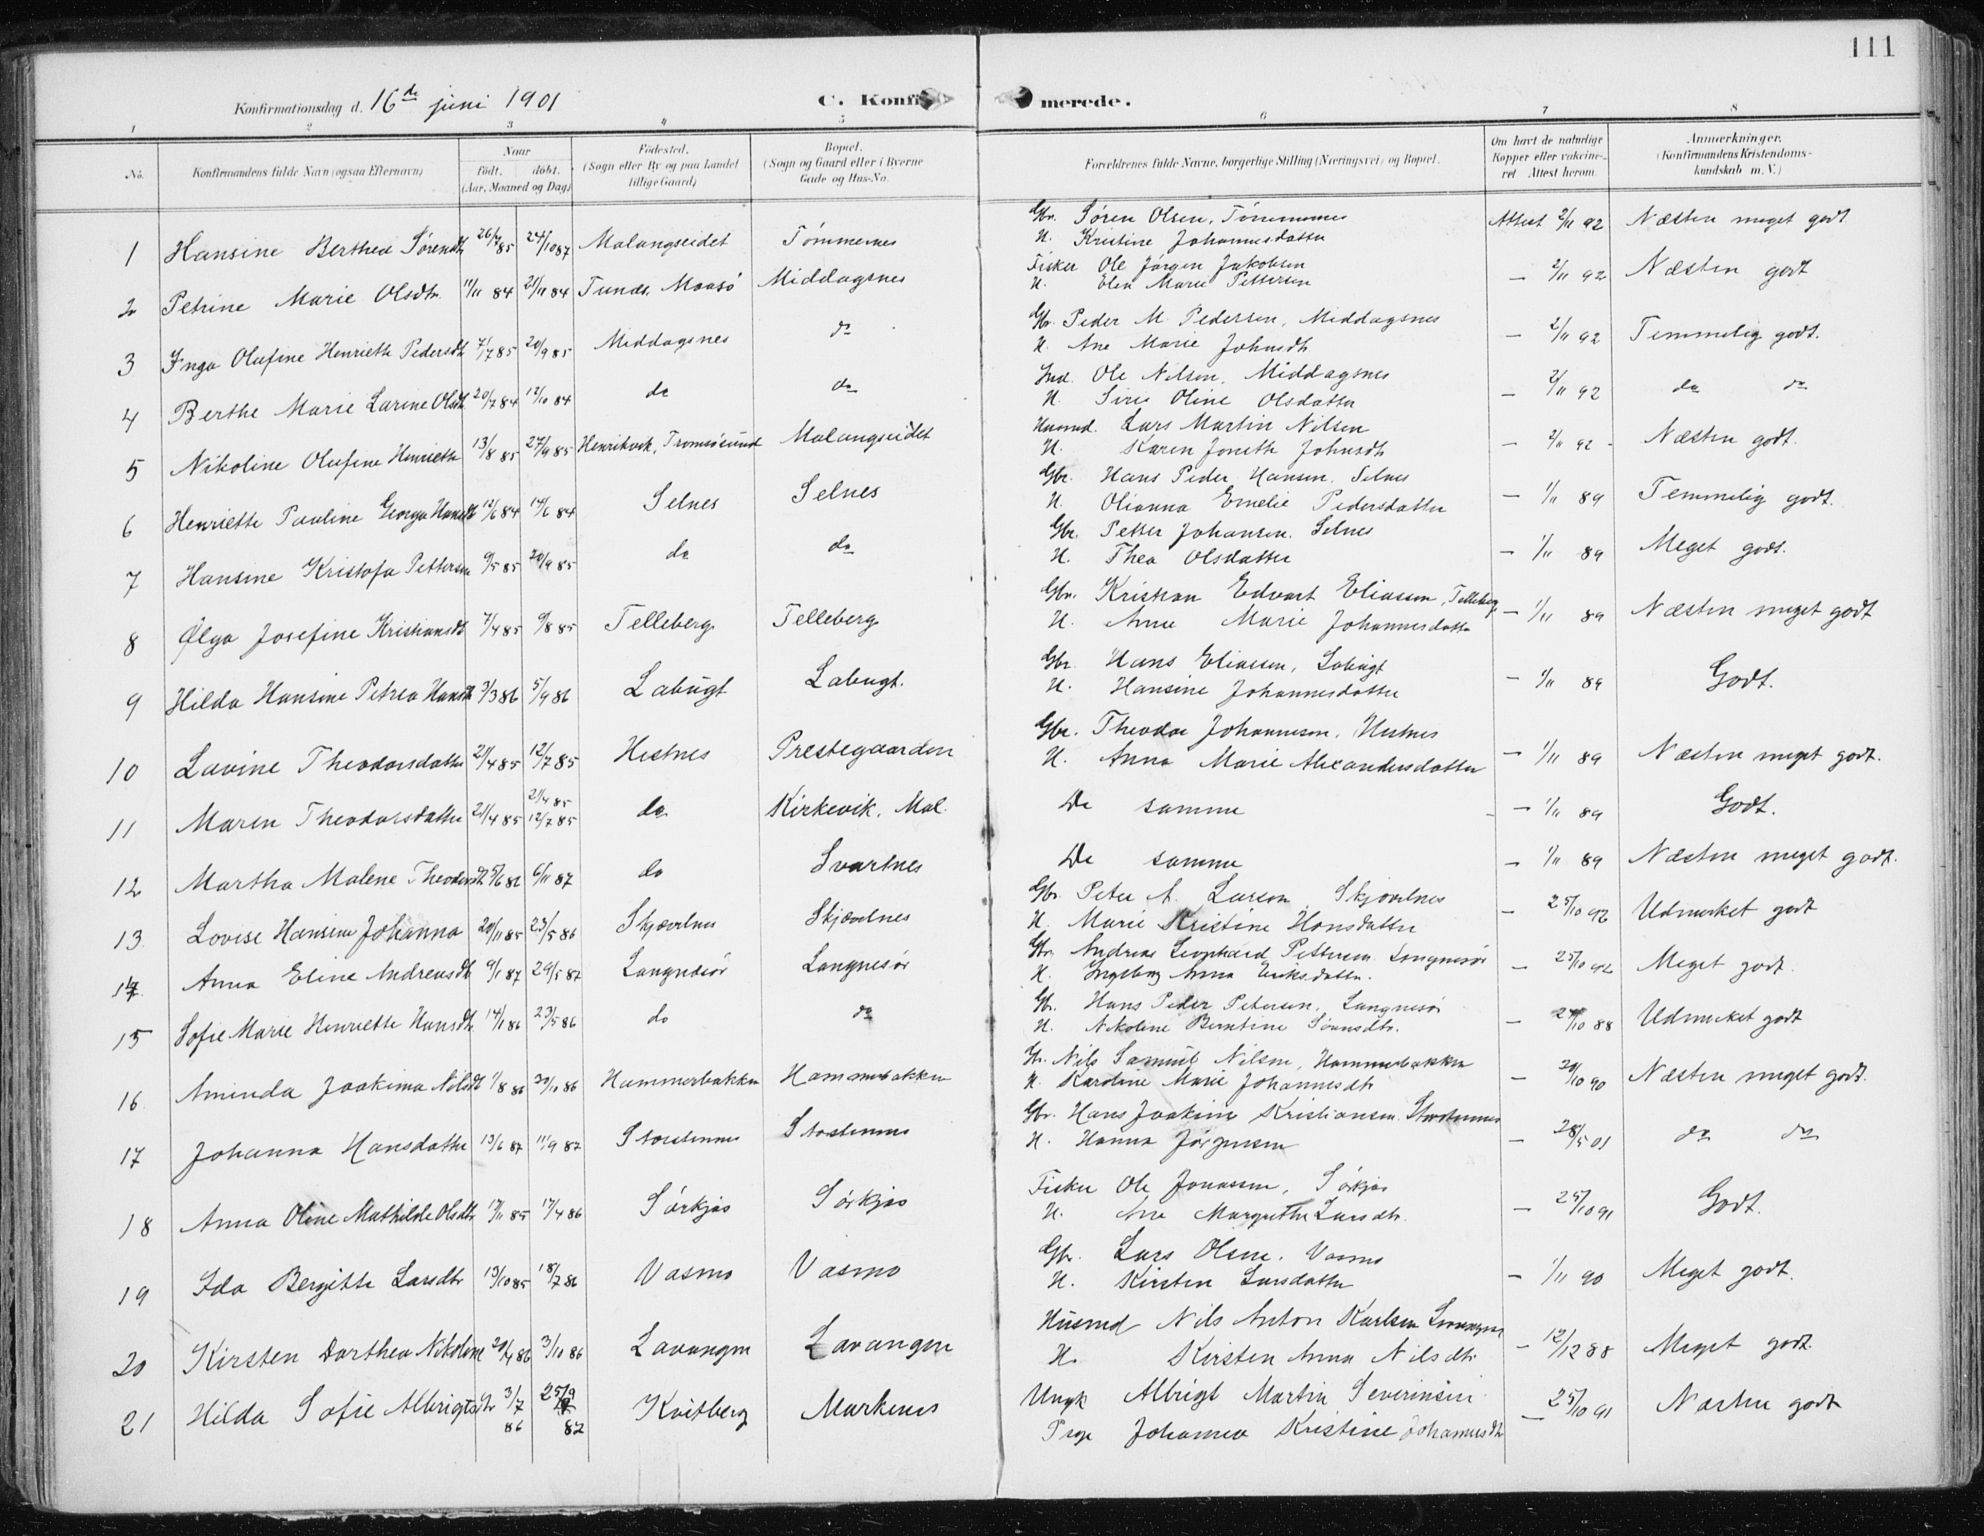 111
Konfirmationsdag d. 16de juni 1901
C. Konfirmerede.
1 2 3 4 5 6 7 8
No. Konfirmandens fulde Navn (ogsaa Efternavn) Naar født. døbt. (Aar, Maaned og Dag) Fødested. (Sogn eller By og paa Landet tillige Gaard) Bopæl. (Sogn og Gaard eller i Byerne Gade og Hus-No. Forældrenes fulde Navne, borgerlige Stilling (Næringsvei) og Bopæl. Om havt de naturlige Kopper eller vakcineret Attest herom. Anmærkninger. (Konfirmandens Kristendomskundskab m. V.)
1 Hansine Berthea Sørensdtr 26/7 85 24/10 87 Malangseidet Tømmernes Gbr. Søren Olsen, Tømmernes Attest 2/11 92 Næsten meget godt
H. Kristine Johannesdatter
2 Petrine Marie Olsdtr. 11/11 84 21/11 84 Tunes, Maasø Middagsnes Fisker Ole Jørgen Jakobsen — 2/11 92 Næsten godt
H. Elen Marie Pettersen
3 Inga Olufine Henriette Pedersdtr 7/7 85 20/9 85 Middagsnes do Gbr. Peder M. Pedersen, Middagsnes — 2/11 92 Temmelig godt.
H. Ane Marie Johnsdtr
4 Berthe Marie Larine Olsdtr 20/7 84 12/10 84 do do Ind. Ole Nilsen, Middagsnes — 2/11 92 do do
H. Siris Oline Olsdatter
5 Nikoline Olufine Henriette 13/8 85 27/9 85 Henrikvik, Tromsøsund Malangseidet Husmd. Lars Martin Nilsen — 2/11 92 - Næsten godt.
H. Karen Joneth Johnsdtr
6 Henriette Pauline Georga Hansdtr 12/6 84 14/6 84 Selnes Selnes Gbr. Hans Peder Hansen, Selnes — 1/11 89 Temmelig godt.
H. Olianna Emelie Pedersdatter
7 Hansine Kristofa Pettersen 9/5 85 20/9 85 do do Gbr. Petter Johansen. Selnes — 1/11 89 Meget godt.
H. Thea Olsdatter
8 Olga Josefine Kristiansdtr 7/4 85 9/8 85 Telleberg Telleberg Gbr. Kristian Edvart Eliassen, Telleberg — 1/11 89 Næsten meget godt
H. Anne Marie Johannesdatter
9 Hilda Hansine Petrea Hansdtr 3/3 86 5/9 86 Labugt Labugt. Gbr. Hans Eliassen, Labugt — 1/11 89 Godt.
H. Hansine Johannesdatter
10 Lavine Theodorsdatter 21/4 85 12/7 85 Hestnes Prestegaarden Gbr. Theodor Johannesen, Hestnes — 1/11 89 Næsten meget godt.
H. Anna Marie Alexandersdatter
11 Maren Theodorsdatter 21/4 85 21/4 85 12/7 85 do Kirkevik, Mal. De samme — 1/11 89 Godt.
12 Martha Malene Theodorsdtr 25/6 86 6/11 87 do Svartnes De samme — 1/11 89 Næsten meget godt.
13 Lovise Hansine Johanna 20/11 85 23/5 86 Skjævelnes Skjævelnes Gbr. Peter A. Larsen Skjævelnes — 25/10 92 Udmerket godt
H. Marie Kristine Hansdatter
14 Anna Eline Andreasdtr 9/1 87 29/5 87 Langnesør Langnesør Gbr. Andreas Leonhard Pettersen Langnesør — 25/10 92 Meget godt.
H. Ingeborg Anna Eriksdatter
15 Sofie Marie Henriette Hansdtr 14/1 86 23/5 86 do do Gbr. Hans Peder Petersen, Langnesør — 24/10 88 Udmerket godt
H. Nikoline Berntine Sørensdtr.
16 Aminda Joakima Nilsdtr 1/8 86 20/10 86 Hammerbakken Hammerbakken Gbr. Nils Samuel Nilsen, Hammerbakken — 20/10 90 Næsten meget godt.
H. Karoline Marie Johannesdtr
17 Johanna Hansdatter 13/6 87 11/9 87 Storstennes Storstennes Gbr. Hans Joakim Kristiansen Storstennes — 28/5 01 do do
H. Hanna Jørgensen
18 Anna Oline Mathilde Olsdtr 17/11 85 17/4 86 Sørkjos Sørkjos Fisker Ole Jonassen, Sørkjos — 25/10 91 Godt.
H. Ane Margrethe Larsdtr.
19 Ida Bergitte Larsdtr 13/10 85 18/7 86 Vasmo Vasmo Gbr. Lars Olsen. Vasmo — 1/11 90 Meget godt.
H. Kirsten Larsdatter
20 Kirsten Dorthea Nikoline 20/4 86 3/10 86 Lavangen Lavangen Husmd Nils Anton Karlsen Lavangen — 12/12 88 Meget godt.
H. Kirsten Anna Nilsdtr.
21 Hilda Sofie Albrigtsdtr 3/7 86 25/9 87 Kvitberg Markenes Ungk Albrigt Martin Severinsen — 25/10 91 Næsten godt
Pige Johanna Kristine Johannesdtr